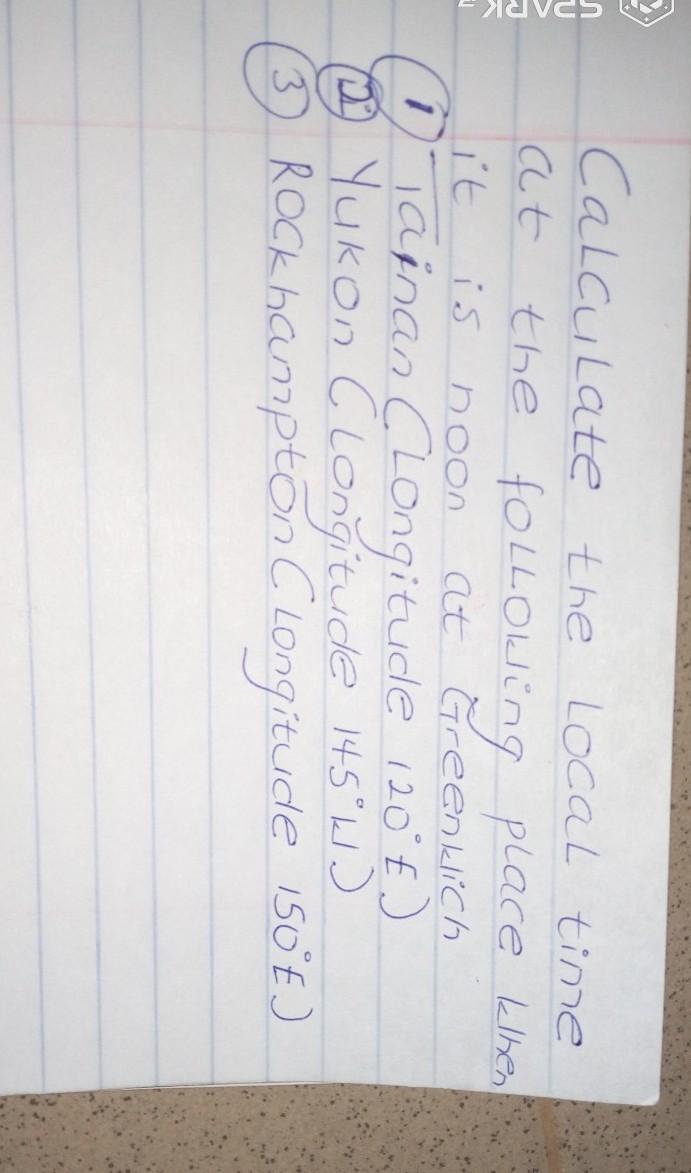 SPARK 2
Calculate the Local time
at the following place When
it is noon at Greenwich
1 Tainan (Longitude 120°E)
II Yukon (Longitude 145°W)
3 Rockhampton (Longitude 150°E)